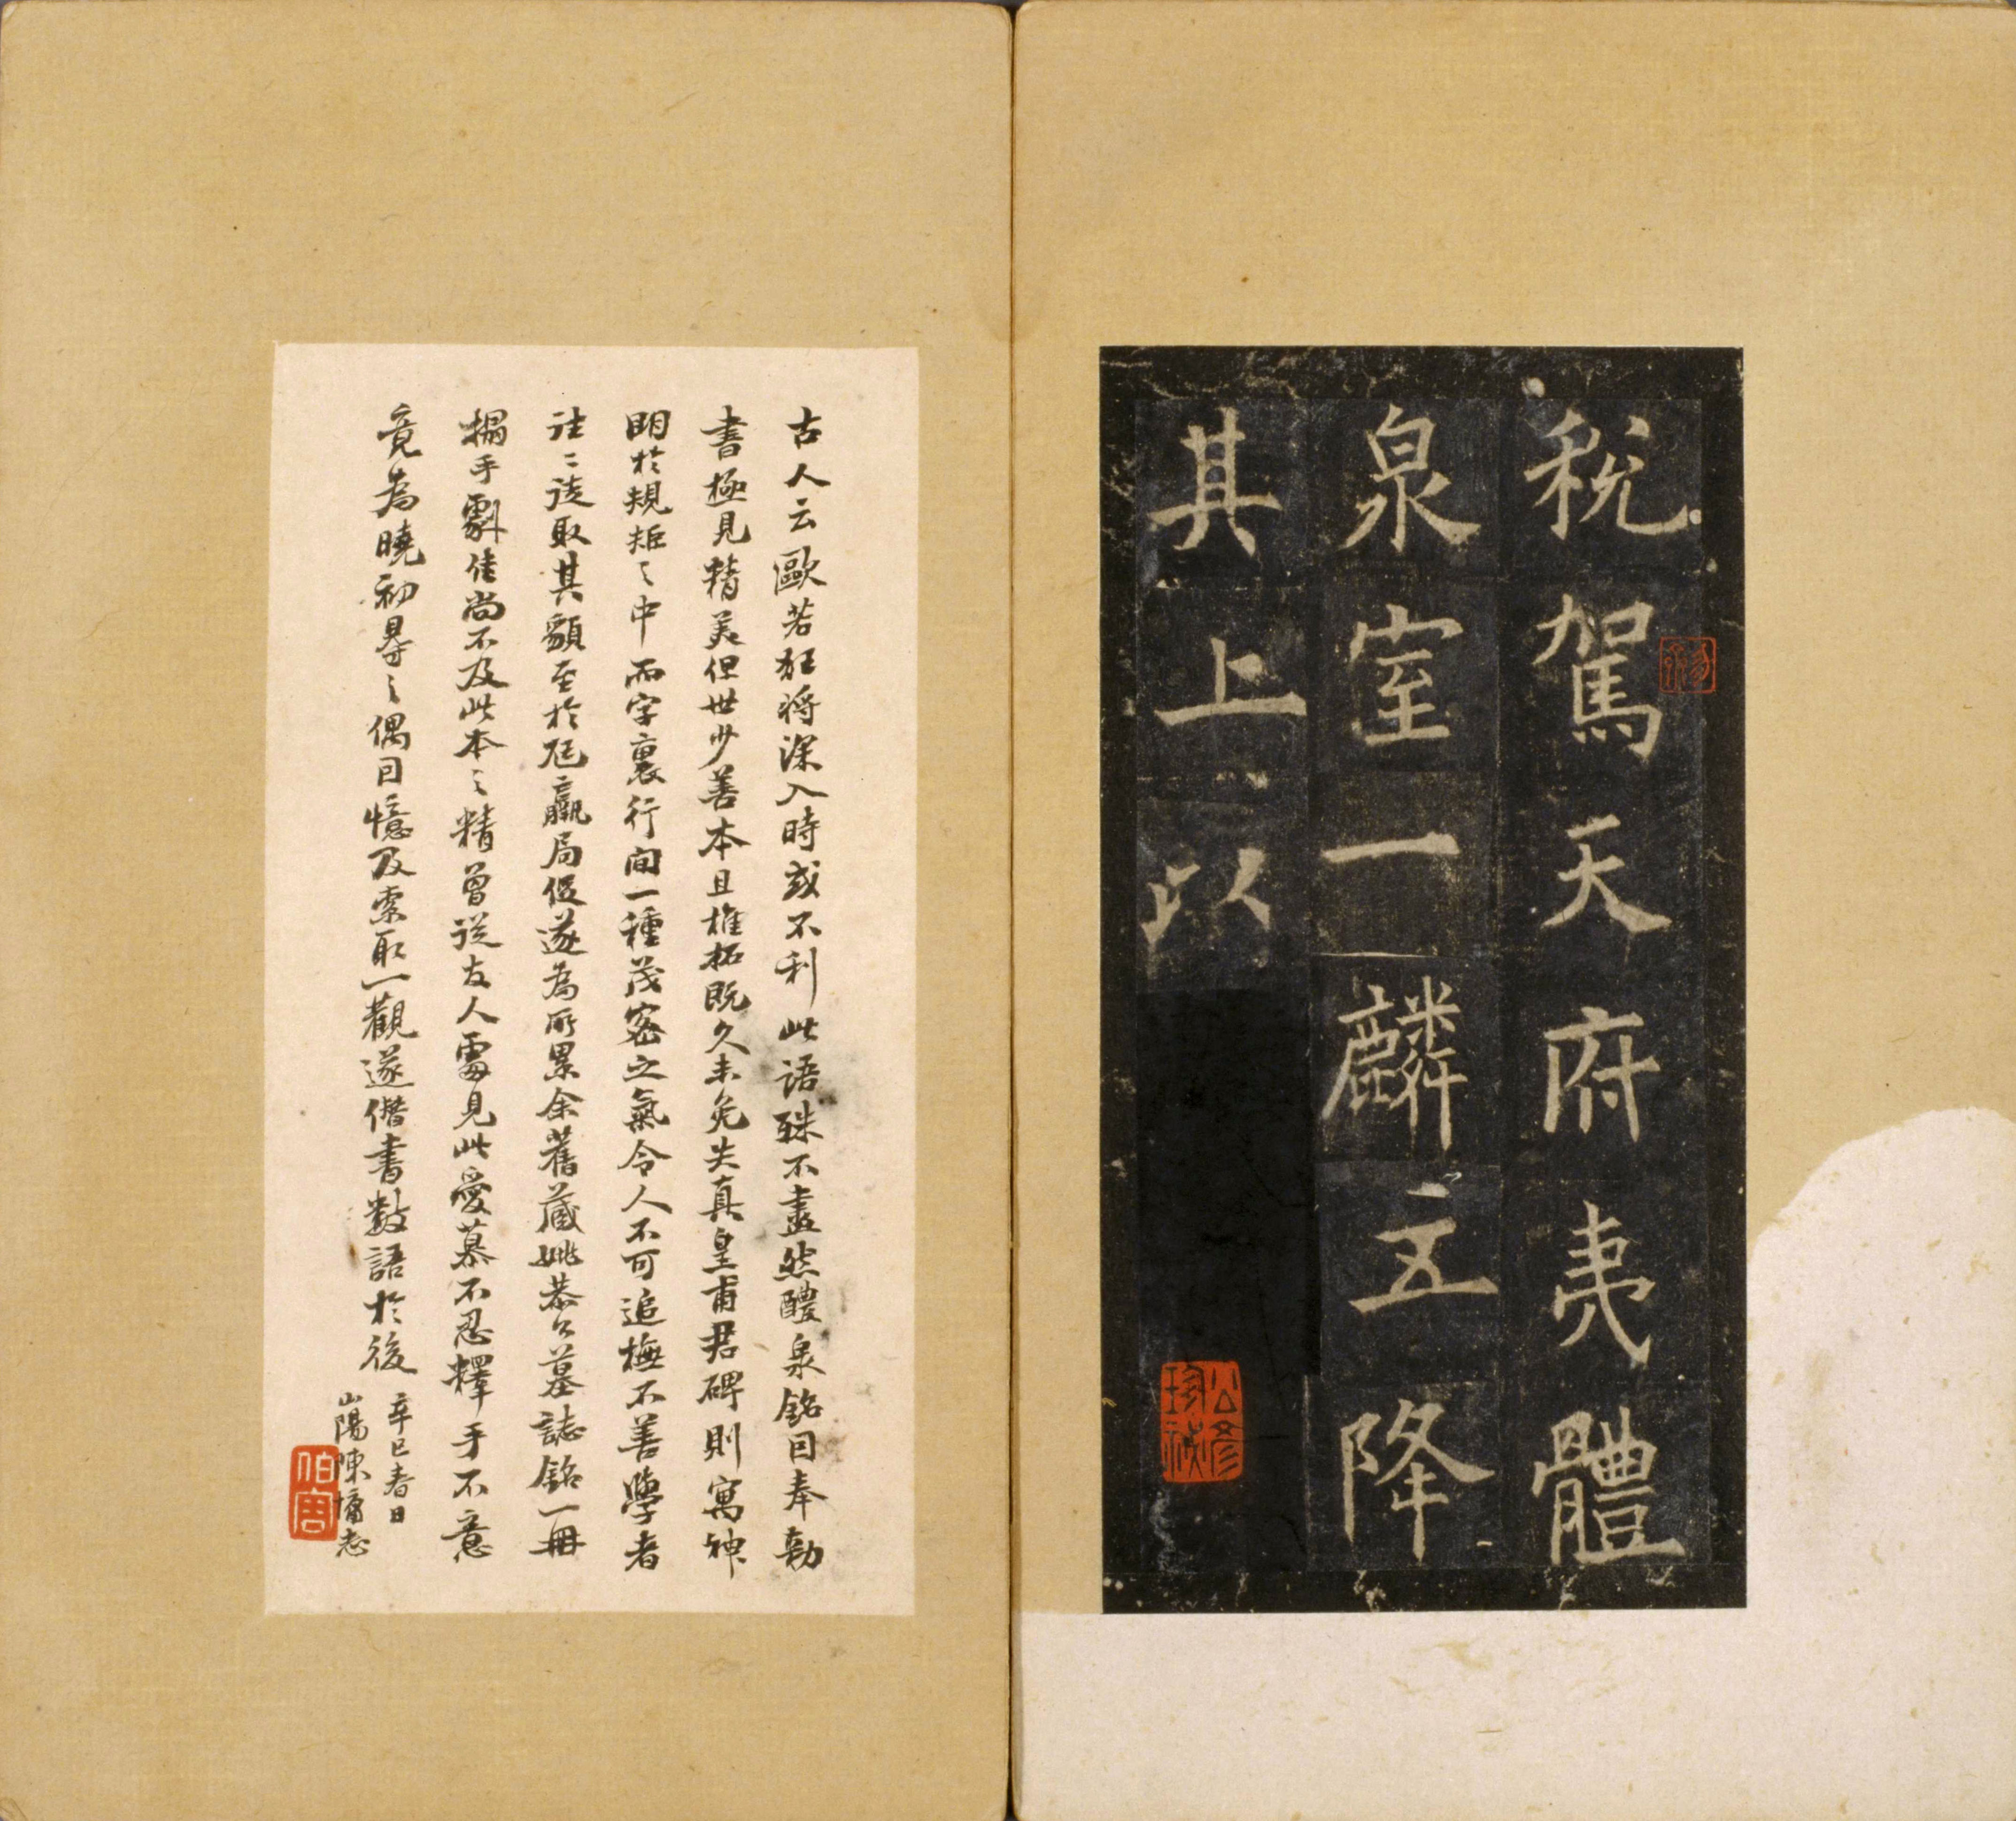 稅駕天府夷體
泉室一麟五降
其上以
公彥
珍秘
古人云歐若狂將深入時或不利此語殊不盡然醴泉銘因奉勅
書極見精美但世少善本且椎拓既久未免失真皇甫君碑則寓神
明於規矩之中而字裏行間一種茂密之氣令人不可追橅不善學者
往〻徒取其貌至於尫羸局促遂為所累余舊藏姚恭公墓誌銘一冊
搨手劇佳尚不及此本之精曾從友人處見此愛慕不忍釋手不意
竟為曉初得之偶因憶及索取一觀遂僭書數語於後
辛巳春日
山陽陳墉志